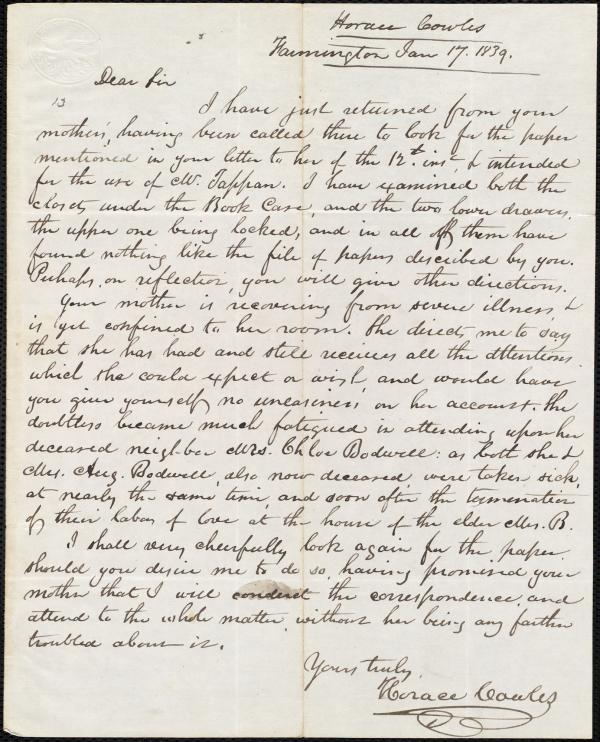 Horace Cowles
Farmington Jan 17. 1839.
Dear Sir
13
I have just returned from your
mother's, having been called there to look for the paper
mentioned in your letter to her of the 12th inst, & intended
for the use of Mr. Tappan. I have examined both the
closets under the Book Case, and the two lower drawers,
the upper one being locked, and in all of them have
found nothing like the file of papers described by you.
Perhaps, on reflection, you will give other directions.
Your mother is recovering from severe illness, &
is yet confined to her room. She directs me to say
that she has had and still receives all the attentions
which she could expect or wish, and would have
you give yourself no uneasiness on her account. She
doubtless became much fatigued in attending upon her
deceased neighbor Mrs. Chloe Bodwell: as both she &
Mrs. Aug. Bodwell, also now deceased, were taken sick,
at nearly the same time, and soon after the termination
of their labors of love at the house of the elder Mrs. B.
I shall very cheerfully look again for the paper
should you desire me to do so, having promised your
mother that I will conduct the correspondence, and
attend to the whole matter, without her being any farther
troubled about it.
Yours truly,
Horace Cowles